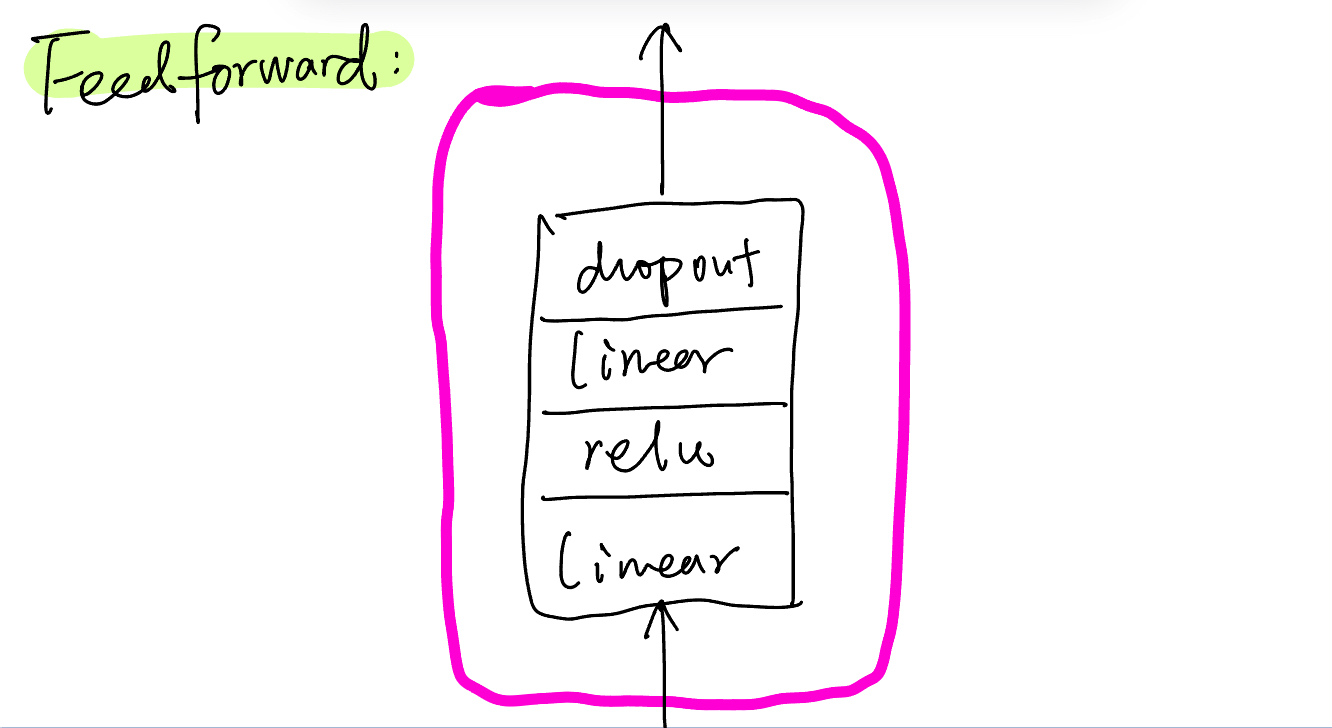 Feedforward:
dropout
linear
relu
linear